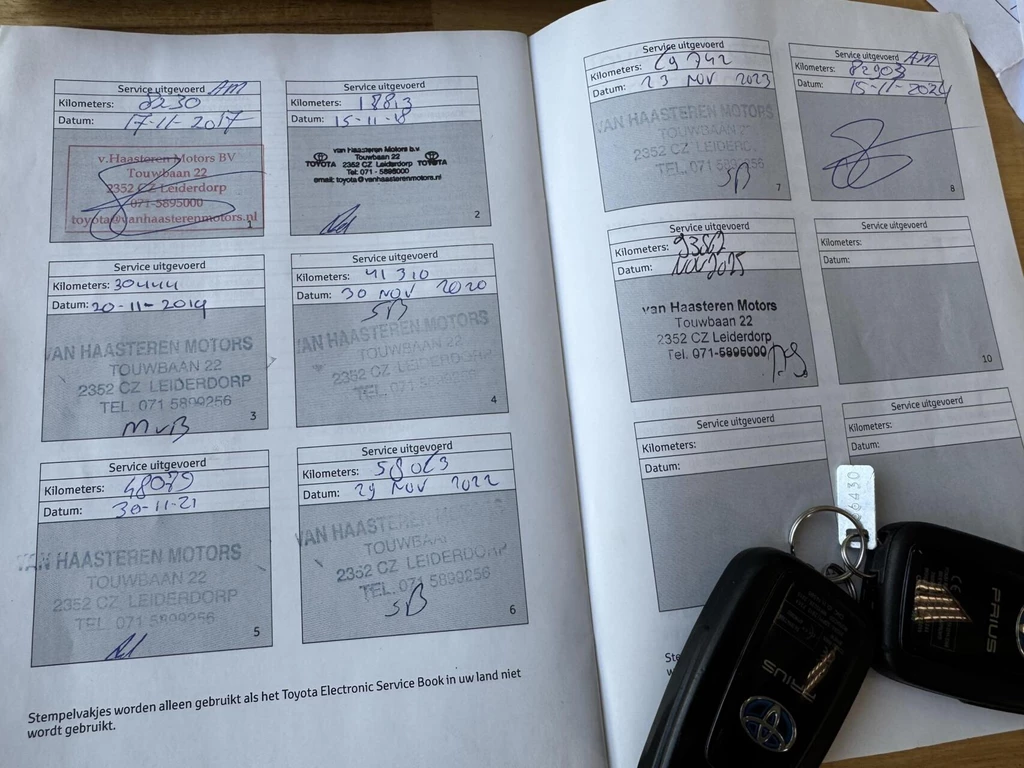 Service uitgevoerd AM
Kilometers: 8230
Datum: 17-11-2017
v.Haasteren Motors BV
Touwbaan 22
2352 CZ Leiderdorp
071-5895000
toyota@vanhaasterenmotors.nl
1
Service uitgevoerd
Kilometers: 18813
Datum: 15-11-18
van Haasteren Motors b.v.
Touwbaan 22
TOYOTA 2352 CZ Leiderdorp TOYOTA
Tel: 071 - 5895000
email: toyota@vanhaasterenmotors.nl
2
Service uitgevoerd
Kilometers: 30444
Datum: 20-11-2019
VAN HAASTEREN MOTORS
TOUWBAAN 22
2352 CZ LEIDERDORP
TEL. 071 5899256
MvB
3
Service uitgevoerd
Kilometers: 41 310
Datum: 30 NOV 2020
SB
VAN HAASTEREN MOTORS
TOUWBAAN 22
2352 CZ LEIDERDORP
TEL. 071 5899256
4
Service uitgevoerd
Kilometers: 48079
Datum: 30-11-21
VAN HAASTEREN MOTORS
TOUWBAAN 22
2352 CZ LEIDERDORP
TEL. 071 5899256
5
Service uitgevoerd
Kilometers: 58063
Datum: 29 NOV 2022
VAN HAASTEREN MOTORS
TOUWBAAN
2352 CZ LEIDERDORP
TEL. 071 5899256
SB
6
Stempelvakjes worden alleen gebruikt als het Toyota Electronic Service Book in uw land niet
wordt gebruikt.
Service uitgevoerd
Kilometers: 69742
Datum: 23 NOV 2023
VAN HAASTEREN MOTORS
TOUWBAAN 2
2352 CZ LEIDERD
TEL. 071 5899256
SB
7
Service uitgevoerd AM
Kilometers: 82903
Datum: 15-11-2024
8
Service uitgevoerd
Kilometers: 93862
Datum: NOV 2025
van Haasteren Motors
Touwbaan 22
2352 CZ Leiderdorp
Tel. 071-5895000
9
Service uitgevoerd
Kilometers:
Datum:
10
Service uitgevoerd
Kilometers:
Datum:
Service uitgevoerd
Kilometers:
Datum:
PRIUS
PRIUS